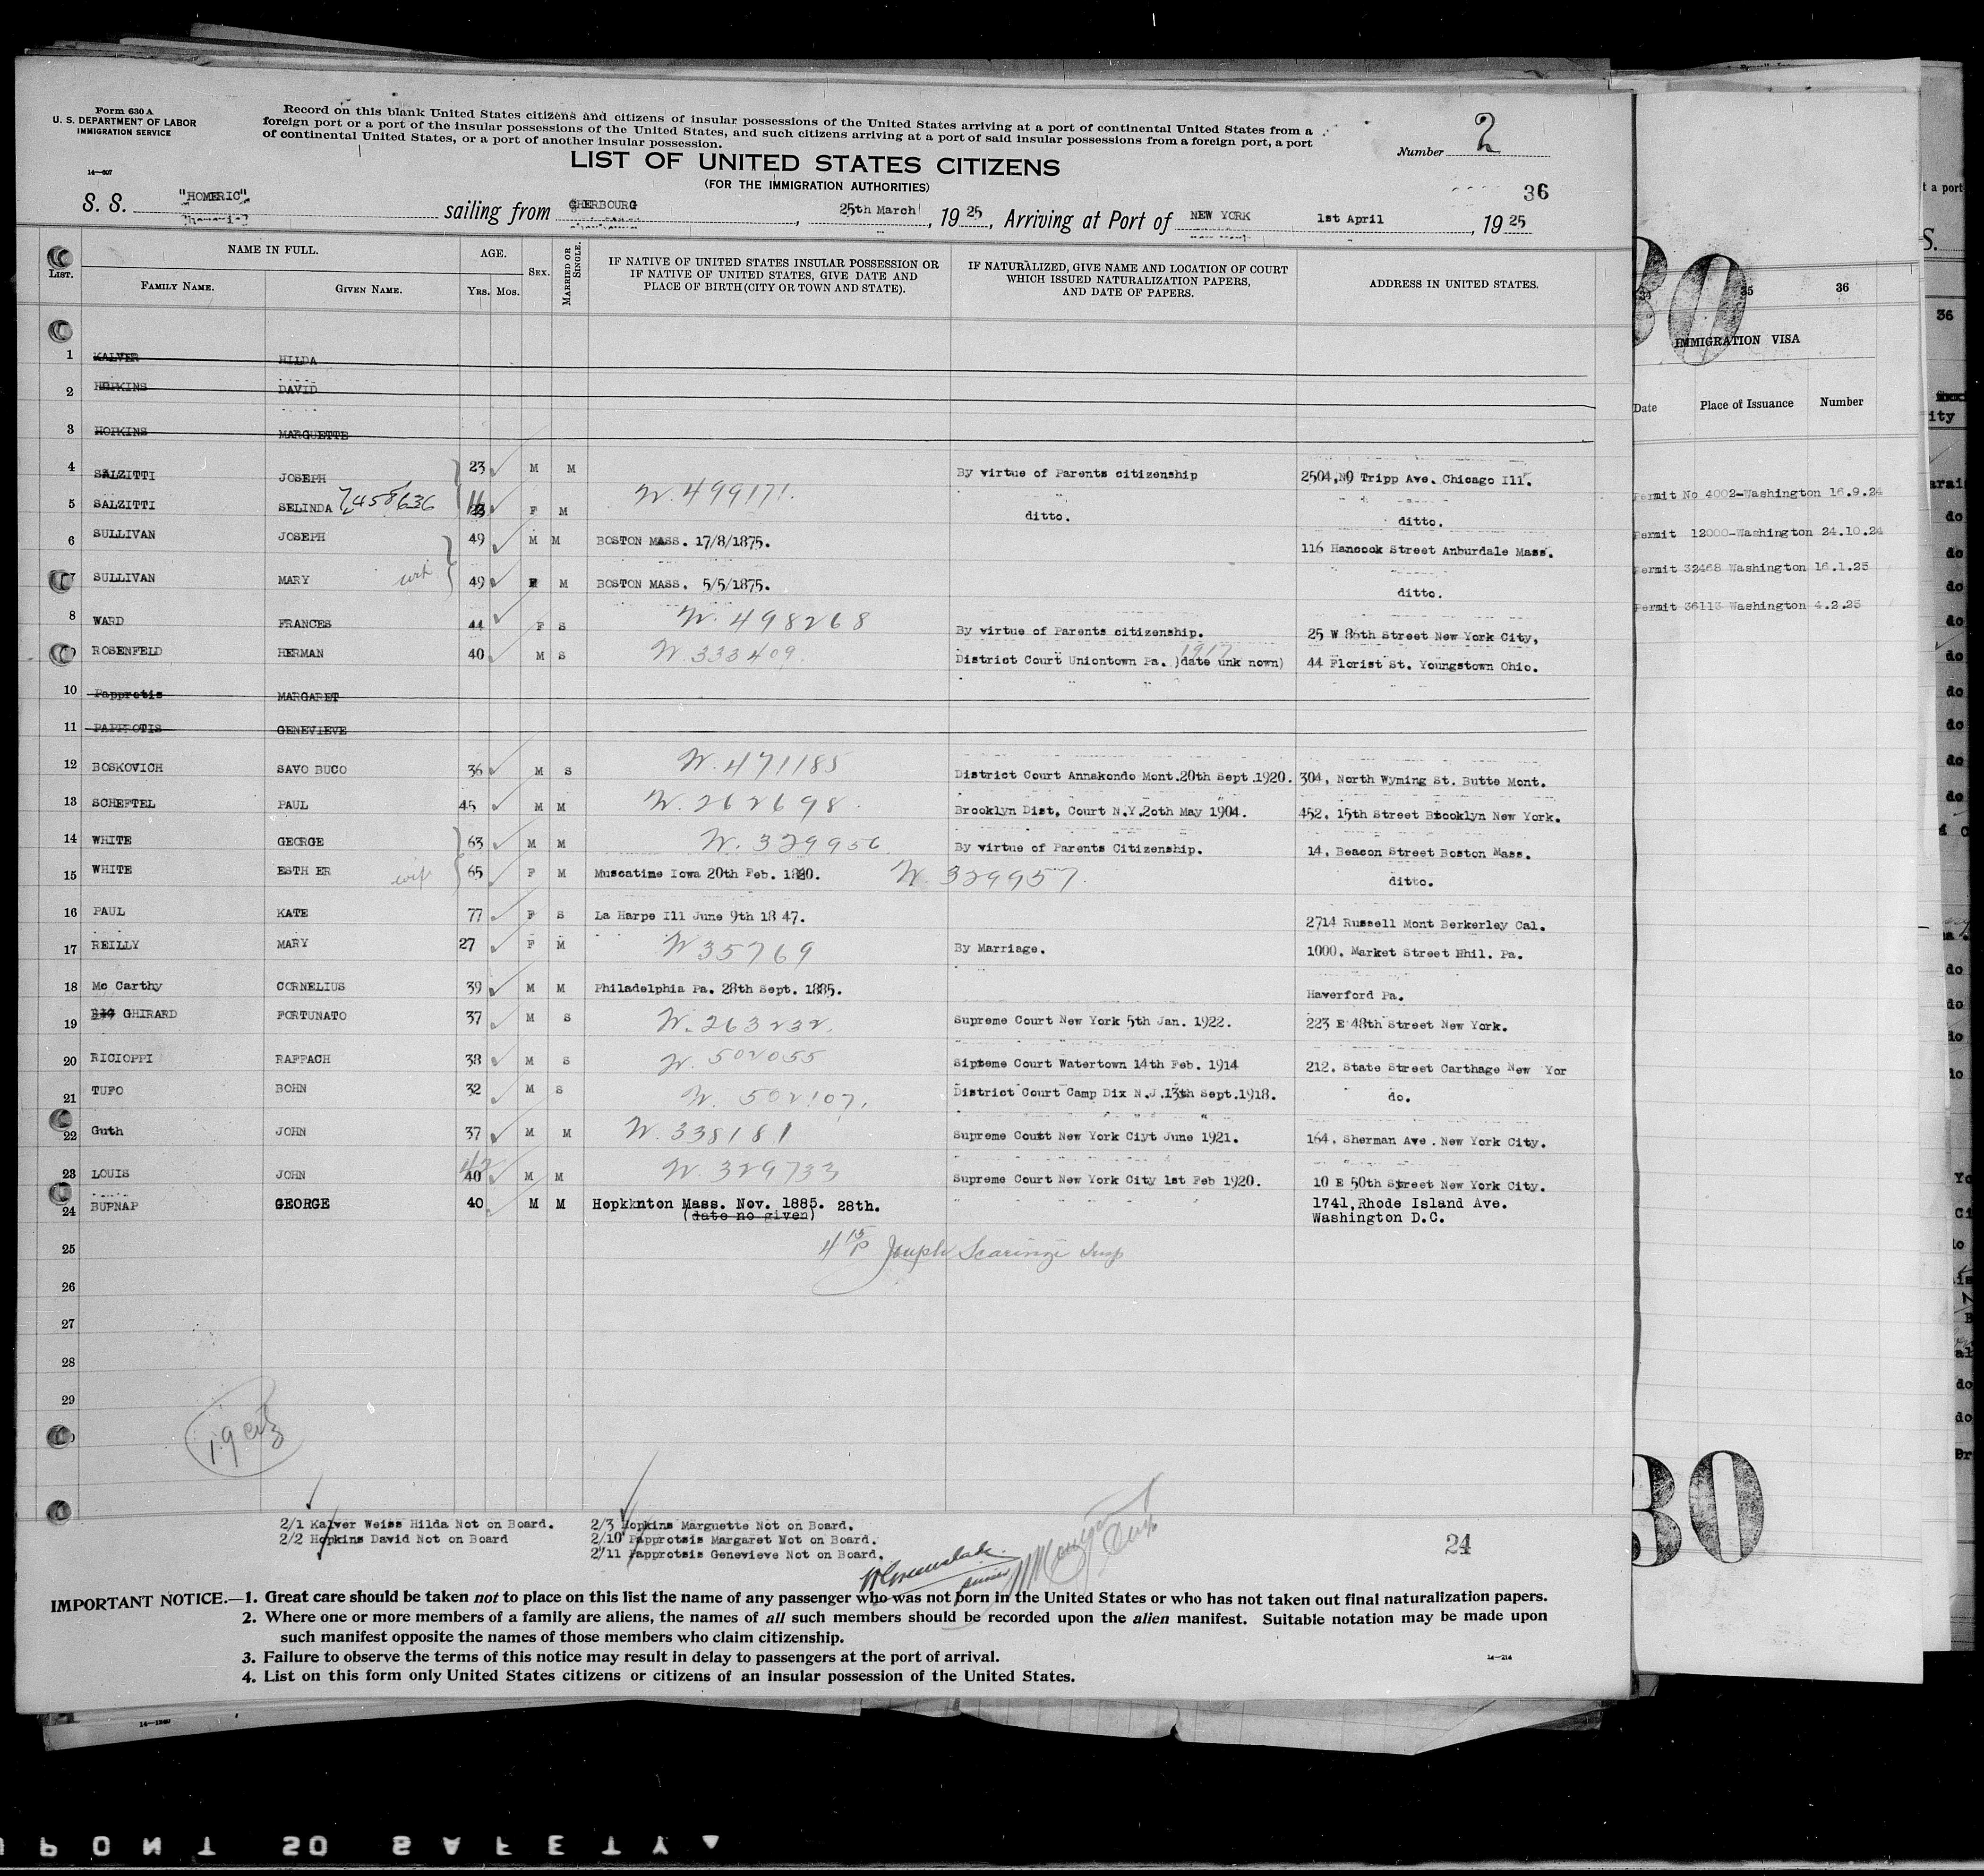 Form 630 A
U. S. DEPARTMENT OF LABOR
IMMIGRATION SERVICE
14—607
Record on this blank United States citizens and citizens of insular possessions of the United States arriving at a port of continental United States from a
foreign port or a port of the insular possessions of the United States, and such citizens arriving at a port of said insular possessions from a foreign port, a port
of continental United States, or a port of another insular possession.
Number 2
LIST OF UNITED STATES CITIZENS
(FOR THE IMMIGRATION AUTHORITIES)
36
S. S. "HOMERIC" sailing from CHERBOURG, 25th March, 1925, Arriving at Port of NEW YORK 1st April, 1925
LIST. NAME IN FULL. AGE. SEX. MARRIED OR SINGLE. IF NATIVE OF UNITED STATES INSULAR POSSESSION OR IF NATIVE OF UNITED STATES, GIVE DATE AND PLACE OF BIRTH (CITY OR TOWN AND STATE). IF NATURALIZED, GIVE NAME AND LOCATION OF COURT WHICH ISSUED NATURALIZATION PAPERS, AND DATE OF PAPERS. ADDRESS IN UNITED STATES.
FAMILY NAME. GIVEN NAME. YRS. MOS.
1 KALVER HILDA
2 HOPKINS DAVID
3 HOPKINS MARGUETTE
4 SALZITTI JOSEPH 23 M M By virtue of Parents citizenship 2504, NO Tripp Ave. Chicago Ill.
5 SALZITTI SELINDA 7458636 F M W. 499171. ditto. ditto.
6 SULLIVAN JOSEPH 49 M M BOSTON MASS. 17/8/1875. 116 Hancock Street Anburdale Mass.
7 SULLIVAN MARY wife 49 F M BOSTON MASS. 5/5/1875. ditto.
8 WARD FRANCES 44 F S W. 498268 By virtue of Parents citizenship. 25 W 86th Street New York City,
9 ROSENFELD HERMAN 40 M S W. 333409. District Court Uniontown Pa. )date unk nown) 1917 44 Florist St. Youngstown Ohio.
10 Papprotis MARGARET
11 PAPPROTIS GENEVIEVE
12 BOSKOVICH SAVO BUCO 36 M S W. 471185 District Court Annakondo Mont. 20th Sept. 1920. 304, North Wyming St. Butte Mont.
13 SCHEFTEL PAUL 45 M M W. 262698. Brooklyn Dist, Court N.Y. 2oth May 1904. 452, 15th Street Brooklyn New York.
14 WHITE GEORGE 63 M M W. 329956 By virtue of Parents Citizenship. 14, Beacon Street Boston Mass.
15 WHITE ESTH ER wife 65 F M Muscatine Iowa 20th Feb. W. 329957. ditto.
16 PAUL KATE 77 F S La Harpe Ill June 9th 18 47. 2714 Russell Mont Berkerley Cal.
17 REILLY MARY 27 F M W 35769 By Marriage. 1000, Market Street Hhil. Pa.
18 Mc Carthy CORNELIUS 39 M M Philadelphia Pa. 28th Sept. 1885. Haverford Pa.
19 GHIRARD FORTUNATO 37 M S W. 263232. Supreme Court New York 5th Jan. 1922. 223 E 48th Street New York.
20 RICIOPPI RAFFACH 38 M S W. 502055 Court Watertown 14th Feb. 1914 212, State Street Carthage New Yor
21 TUFO BOHN 32 M S W. 502107. District Court Camp Dix N.J. 13th Sept. 1918. do.
22 Guth JOHN 37 M M W. 338181 Supreme Coutt New York Ciyt June 1921. 164, Sherman Ave. New York City.
23 LOUIS JOHN 40 M M W. 329733 Supreme Court New York City 1st Feb 1920. 10 E 50th Street New York City.
24 BURNAP GEORGE 40 M M Hopkknton Mass. Nov. 1885. 28th. 1741, Rhode Island Ave.
(date no given) Washington D.C.
25 4 15 P Joseph Scaringi Insp
26
27
28
29
19 citz
2/1 Kalver Weiss Hilda Not on Board. 2/3 Hopkins Marguette Not on Board.
2/2 Hopkins David Not on Board 2/10 Papprotsis Margaret Not on Board.
2/11 Papprotsis Genevieve Not on Board.
24
IMPORTANT NOTICE.—1. Great care should be taken not to place on this list the name of any passenger who was not born in the United States or who has not taken out final naturalization papers.
2. Where one or more members of a family are aliens, the names of all such members should be recorded upon the alien manifest. Suitable notation may be made upon
such manifest opposite the names of those members who claim citizenship.
3. Failure to observe the terms of this notice may result in delay to passengers at the port of arrival.
4. List on this form only United States citizens or citizens of an insular possession of the United States.
14—214
t a port
S.
30
35 36
36
IMMIGRATION VISA
Date Place of Issuance Number
Permit No 4002-Washington 16.9.24
Permit 12000-Washington 24.10.24
Permit 32468 Washington 16.1.25
Permit 36113 Washington 4.2.25
30
PONT 50 SAFETY